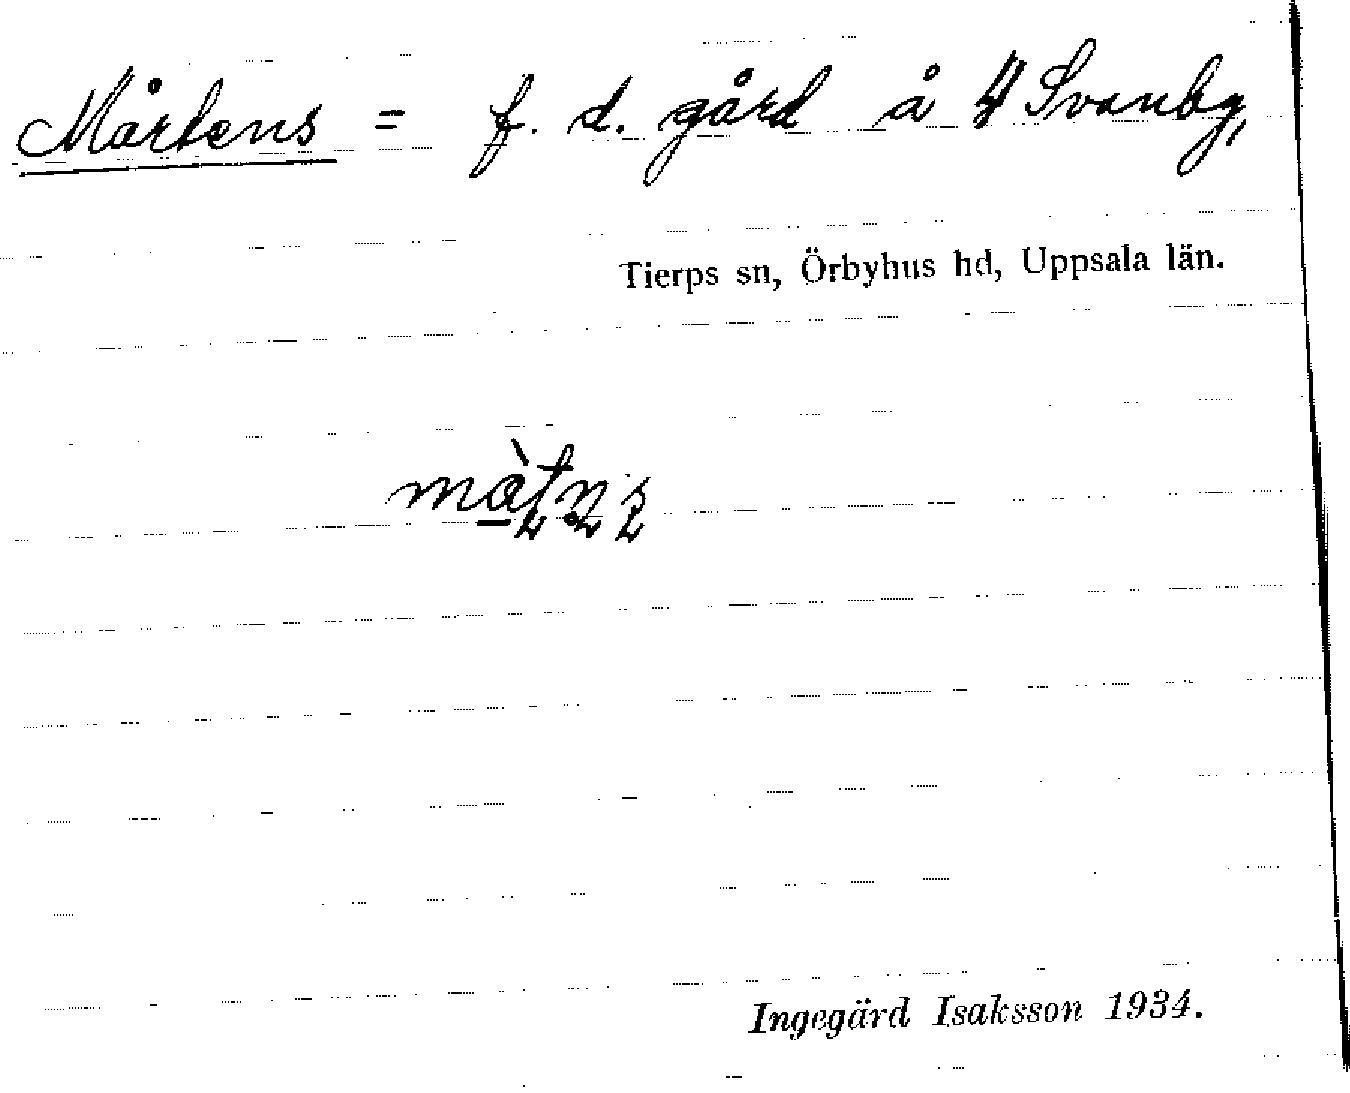 Mårtens = f. d. gård å 4 Svanby,
Tierps sn, Örbyhus hd, Uppsala län.
Ingegärd Isaksson 1934.